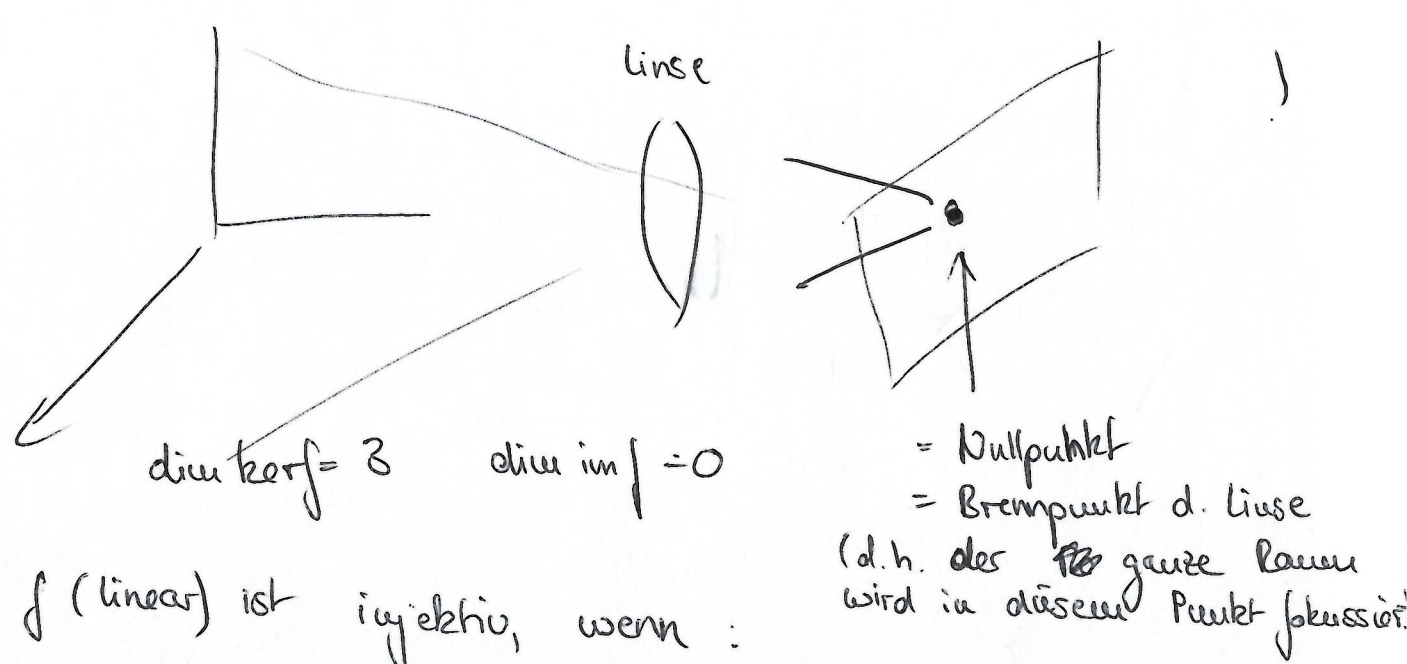 Linse
dim ker f = 3
dim im f = 0
= Nullpunkt
= Brennpunkt d. Linse
(d.h. der ganze Raum
wird in diesem Punkt fokussiert)
f (linear) ist injektiv, wenn :